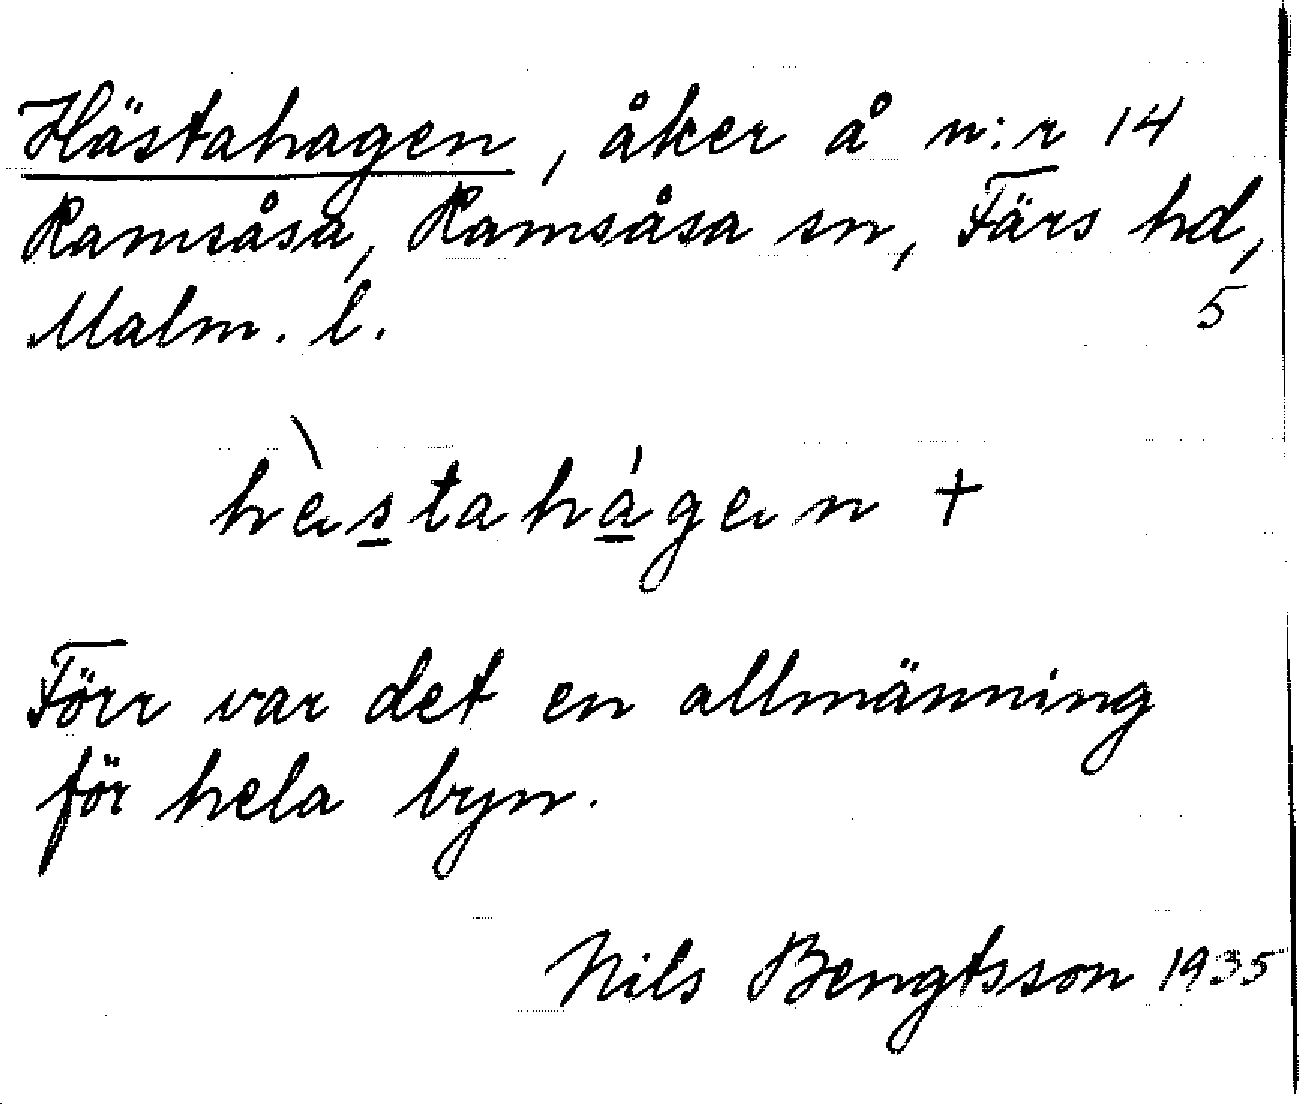 Hästahagen, åker å n:r 14
Ramsåsa, Ramsåsa sn, Färs hd,
Malm. l. 5
hèstahágen +
Förr var det en allmänning
för hela byn.
Nils Bengtsson 1935